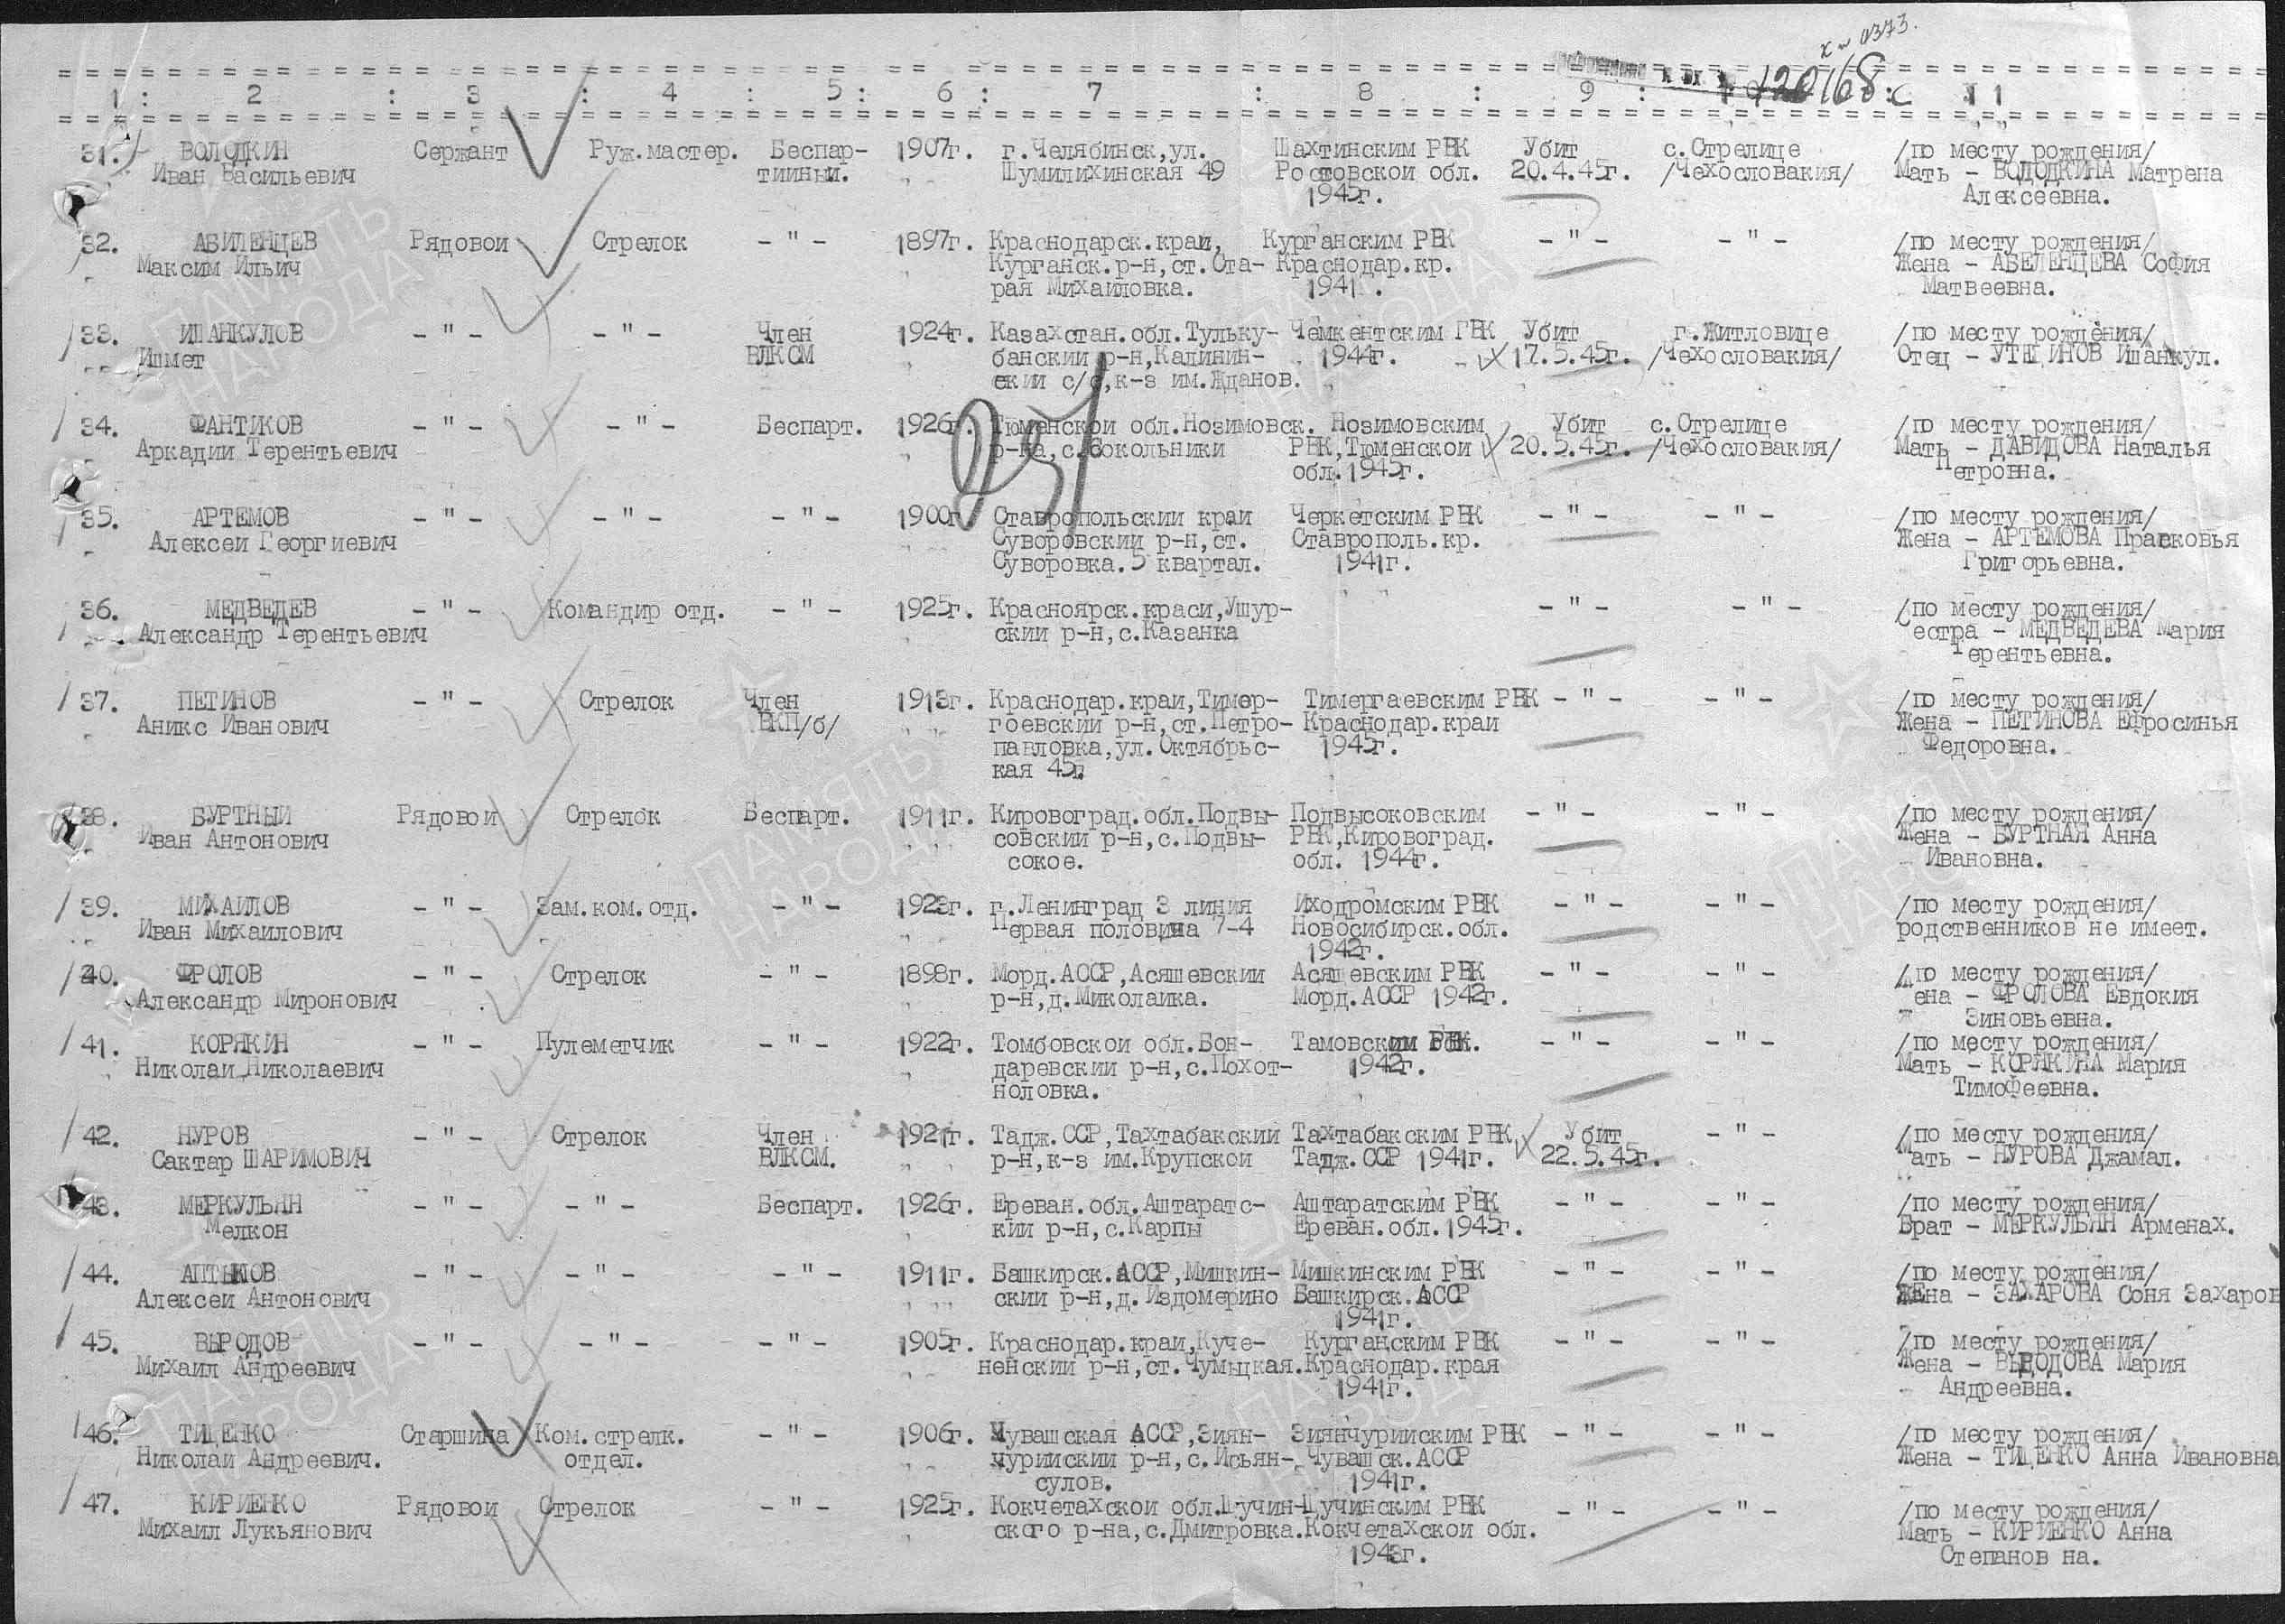 х н 0373.
120168с
1 : 2 : 3 : 4 : 5 : 6 : 7 : 8 : 9 : : 11
31. ВОЛОДКИН Сержант Руж.мастер. Беспар- 1907г. г.Челябинск,ул. Шахтинским РВК Убит с.Стрелице /по месту рождения/
Иван Васильевич тийный. Шумилихинская 49 Ростовской обл. 20.4.45г. /Чехословакия/ Мать - ВОЛОДКИНА Матрена
1945г. Алексеевна.
32. АБИЛЕНЦЕВ Рядовой Стрелок - " - 1897г. Краснодарск.край, Курганским РВК - " - - " - /по месту рождения/
Максим Ильич Курганск.р-н,ст.Ста- Краснодар.кр. Жена - АБЕЛЕНЦЕВА София
рая Михайловка. 1941 . Матвеевна.
33. ИШАНКУЛОВ - " - - " - Член 1924г. Казахстан.обл.Тульку- Чемкентским ГВК Убит г.Житловице /по месту рождения/
Ишмет ВЛКСМ банский р-н,Калинин- 1944г. 17.5.45г. /Чехословакия/ Отец - УТЕГИНОВ Ишанкул.
ский с/с,к-з им.Жданов.
34. ФАНТИКОВ - " - - " - Беспарт. 1926г. Тюменской обл.Нозимовск. Нозимовским Убит с.Стрелице /по месту рождения/
Аркадий Терентьевич р-на,с.Сокольники РВК,Тюменской 20.5.45г. /Чехословакия/ Мать - ДАВИДОВА Наталья
обл.1945г. Петровна.
35. АРТЕМОВ - " - - " - - " - 1900г. Ставропольский край Черкетским РВК - " - - " - /по месту рождения/
Алексей Георгиевич Суворовский р-н,ст. Ставрополь.кр. Жена - АРТЕМОВА Прасковья
Суворовка.5 квартал. 1941г. Григорьевна.
36. МЕДВЕДЕВ - " - Командир отд. - " - 1925г. Красноярск.краси,Ушур- - " - - " - /по месту рождения/
Александр Терентьевич ский р-н,с.Казанка Сестра - МЕДВЕДЕВА Мария
Терентьевна.
37. ПЕТИНОВ - " - Стрелок Член 1913г. Краснодар.край,Тимер- Тимергаевским РВК - " - - " - /по месту рождения/
Аникс Иванович ВКП/б/ гоевский р-н,ст.Петро- Краснодар.край Жена - ПЕТИНОВА Ефросинья
павловка,ул.Октябрьс- 1945г. Федоровна.
кая 45г.
38. БУРТНЫЙ Рядовой Стрелок Беспарт. 1911г. Кировоград.обл.Подвы- Подвысоковским - " - - " - /по месту рождения/
Иван Антонович совский р-н,с.Подвы- РВК,Кировоград. Жена - БУРТНАЯ Анна
сокое. обл. 1944г. Ивановна.
39. МИХАЙЛОВ - " - Зам.ком.отд. - " - 1923г. г.Ленинград 3 линия Иходромским РВК - " - - " - /по месту рождения/
Иван Михайлович Первая половина 7-4 Новосибирск.обл. родственников не имеет.
1942г.
40. ФРОЛОВ - " - Стрелок - " - 1898г. Морд.АССР,Асяшевский Асяшевским РВК - " - - " - /по месту рождения/
Александр Миронович р-н,д.Миколаика. Морд.АССР 1942г. Жена - ФРОЛОВА Евдокия
Зиновьевна.
41. КОРЯКИН - " - Пулеметчик - " - 1922г. Томбовской обл.Бон- Тамовским РВК. - " - - " - /по месту рождения/
Николай Николаевич даревский р-н,с.Похот- 1942г. Мать - КОРЯКИНА Мария
ноловка. Тимофеевна.
42. НУРОВ - " - Стрелок Член 1921г. Тадж.ССР,Тахтабакский Тахтабакским РВК Убит - " - /по месту рождения/
Сактар ШАРИМОВИЧ ВЛКСМ. р-н,к-з им.Крупской Тадж.ССР 1941г. 22.5.45г. Мать - НУРОВА Джамал.
43. МЕРКУЛЬЯН - " - - " - Беспарт. 1926г. Ереван.обл.Аштаратс- Аштаратским РВК - " - - " - /по месту рождения/
Мелкон кий р-н,с.Карпы Ереван.обл.1945г. Брат - МЕРКУЛЬЯН Арменах.
44. АПТЫКОВ - " - - " - - " - 1911г. Башкирск.АССР,Мишкин- Мишкинским РВК - " - - " - /по месту рождения/
Алексей Антонович ский р-н,д.Издомерино Башкирск.АССР Жена - ЗАХАРОВА Соня Захаров
1941г.
45. ВЫРОДОВ - " - - " - - " - 1905г. Краснодар.край,Куче- Курганским РВК - " - - " - /по месту рождения/
Михаил Андреевич ненский р-н,ст.Чумыцкая. Краснодар.края Жена - ВЫРОДОВА Мария
1941г. Андреевна.
46. ТИЩЕНКО Старшина Ком.стрелк. - " - 1906г. Чувашская АССР,Зиян- Зиянчурийским РВК - " - - " - /по месту рождения/
Николай Андреевич. отдел. чурийский р-н,с.Исьян- Чувашск.АССР Жена - ТИЩЕНКО Анна Ивановна
сулов. 1941г.
47. КИРИЕНКО Рядовой Стрелок - " - 1925г. Кокчетахской обл.Щучин- Щучинским РВК - " - - " - /по месту рождения/
Михаил Лукьянович ского р-на,с.Дмитровка. Кокчетахской обл. Мать - КИРИЕНКО Анна
1943г. Степанов на.
ПАМЯТЬ
НАРОДА